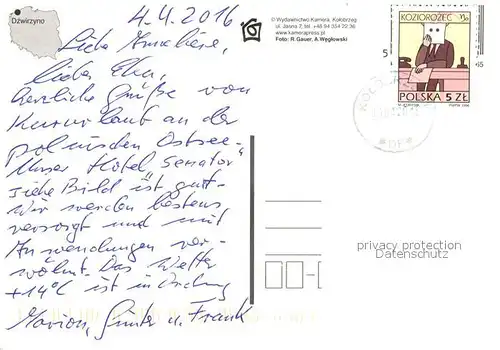 Dźwirzyno
4.4.2016
Liebe Anneliese,
liebe Elke,
herzliche Grüße vom
Kururlaub an der
polnischen Ostsee.
Unser Hotel „Senator"
siehe Bild ist gut.
Wir werden bestens
versorgt und mit
Anwendungen ver-
wöhnt. Das Wetter
+14°C ist in Ordnung
Marion, Günter u. Frank
© Wydawnictwo Kamera, Kołobrzeg
ul. Jasna 7, tel. +48 94 354 22 36
www.kamerapress.pl
Foto: R.Gauer, A.Węgłowski
KOZIOROŻEC
POLSKA 5 ZŁ
privacy protection
Datenschutz